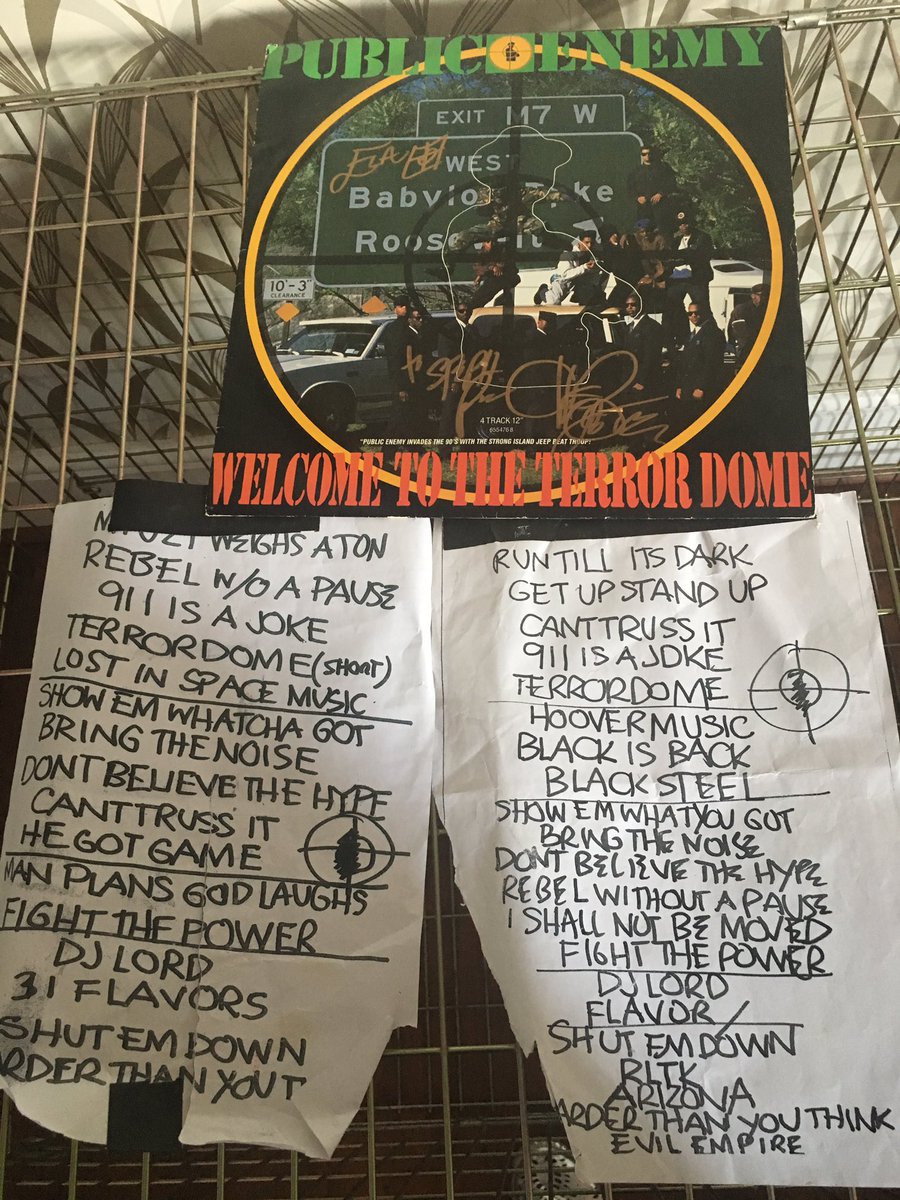 PUBLIC ENEMY
EXIT M7 W
WEST
10'-3"
CLEARANCE
4 TRACK 12"
655476 8
"PUBLIC ENEMY INVADES THE 90'S WITH THE STRONG ISLAND JEEP BEAT
WELCOME TO THE TERROR DOME
WEIGHS A TON
REBEL W/O A PAUSE
911 IS A JOKE
TERRORDOME (SHORT)
LOST IN SPACE MUSIC
SHOW EM WHATCHA GOT
BRING THE NOISE
DONT BELIEVE THE HYPE
CANT TRUSS IT
HE GOT GAME
MAN PLANS GOD LAUGHS
FIGHT THE POWER
DJ LORD
31 FLAVORS
SHUT EM DOWN
ARDER THAN YOU T
RUN TILL ITS DARK
GET UP STAND UP
CANT TRUSS IT
911 IS A JOKE
TERRORDOME
HOOVER MUSIC
BLACK IS BACK
BLACK STEEL
SHOW EM WHAT YOU GOT
BRING THE NOISE
DONT BELIEVE THE HYPE
REBEL WITHOUT A PAUSE
I SHALL NOT BE MOVED
FIGHT THE POWER
DJ LORD
FLAVOR
SHUT EM DOWN
RLTK
ARIZONA
ARDER THAN YOU THINK
EVIL EMPIRE